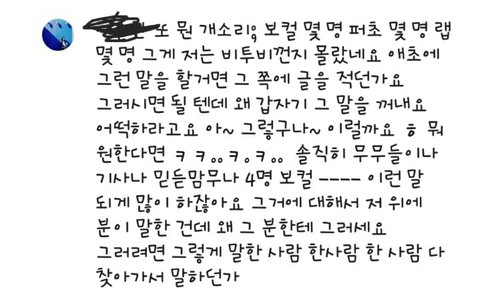 또 뭔 개소리; 보컬 몇 명 퍼초 몇 명 랩
몇 명 그게 저는 비투비껀지 몰랐네요 애초에
그런 말을 할거면 그 쪽에 글을 적던가요
그러시면 될 텐데 왜 갑자기 그 말을 꺼내요
어떡하라고요 아~ 그렇구나~ 이럴까요 ㅎ 뭐
원한다면 ㅋㅋ。。ㅋ。ㅋ。。 솔직히 무무들이나
기사나 믿듣맘무나 4명 보컬 ---- 이런 말
되게 많이 하잖아요 그거에 대해서 저 위에
분이 말한 건데 왜 그 분한테 그러세요
그러려면 그렇게 말한 사람 한사람 한 사람 다
찾아가서 말하던가